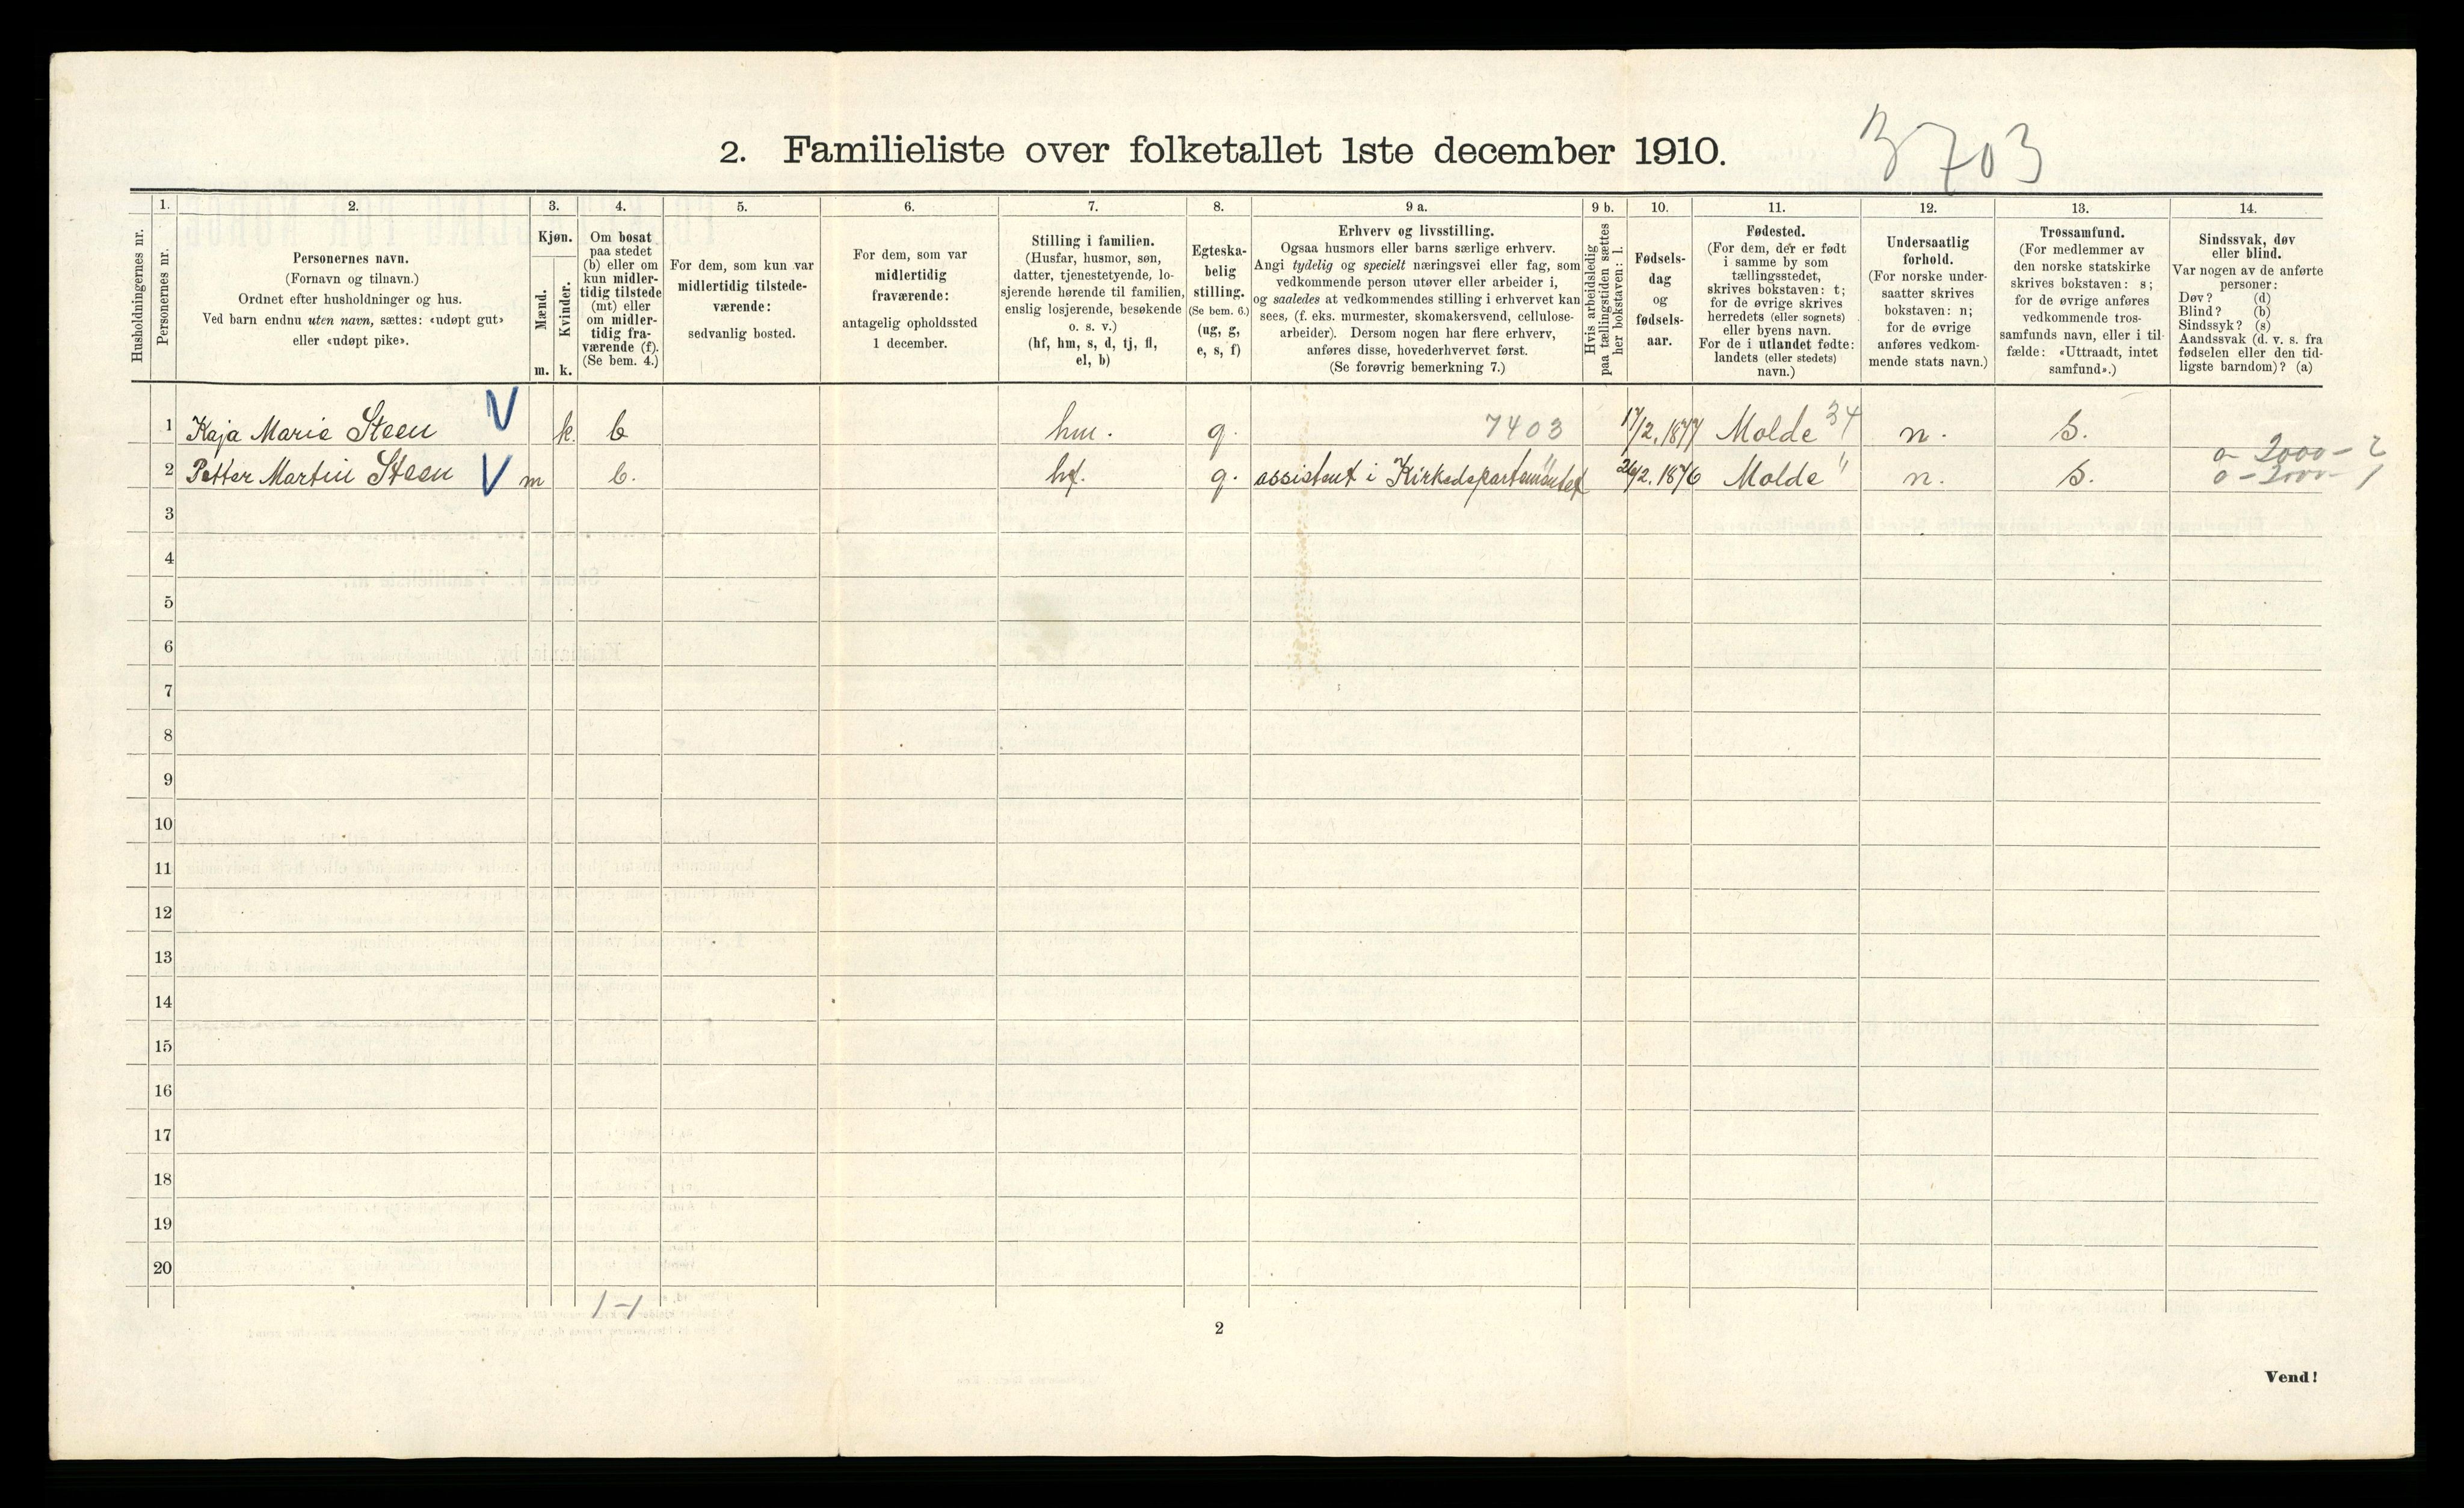 3703
2. Familieliste over folketallet 1ste december 1910.
Husholdningernes nr.
1.
Personernes nr.
2.
Personernes navn.
(Fornavn og tilnavn.)
Ordnet efter husholdninger og hus.
Ved barn endnu uten navn, sættes: «udøpt gut»
eller «udøpt pike».
3.
Kjøn.
Mænd.
Kvinder.
m. k.
4.
Om bosat
paa stedet
(b) eller om
kun midler-
tidig tilstede
(mt) eller
om midler-
tidig fra-
værende (f).
(Se bem. 4.)
5.
For dem, som kun var
midlertidig tilstede-
værende:
sedvanlig bosted.
6.
For dem, som var
midlertidig
fraværende:
antagelig opholdssted
1 december.
7.
Stilling i familien.
(Husfar, husmor, søn,
datter, tjenestetyende, lo-
sjerende hørende til familien,
enslig losjerende, besøkende
o. s. v.)
(hf, hm, s, d, tj, fl,
el, b)
8.
Egteska-
belig
stilling.
(Se bem. 6.)
(ug, g,
e, s, f)
9 a.
Erhverv og livsstilling.
Ogsaa husmors eller barns særlige erhverv.
Angi tydelig og specielt næringsvei eller fag, som
vedkommende person utøver eller arbeider i,
og saaledes at vedkommendes stilling i erhvervet kan
sees, (f. eks. murmester, skomakersvend, cellulose-
arbeider). Dersom nogen har flere erhverv,
anføres disse, hovederhvervet først.
(Se forøvrig bemerkning 7.)
9 b.
Hvis arbeidsledig
paa tællingstiden sættes
her bokstaven: l.
10.
Fødsels-
dag
og
fødsels-
aar.
11.
Fødested.
(For dem, der er født
i samme by som
tællingsstedet,
skrives bokstaven: t;
for de øvrige skrives
herredets (eller sognets)
eller byens navn.
For de i utlandet fødte:
landets (eller stedets)
navn.)
12.
Undersaatlig
forhold.
(For norske under-
saatter skrives
bokstaven: n;
for de øvrige
anføres vedkom-
mende stats navn.)
13.
Trossamfund.
(For medlemmer av
den norske statskirke
skrives bokstaven: s;
for de øvrige anføres
vedkommende tros-
samfunds navn, eller i til-
fælde: «Uttraadt, intet
samfund».)
14.
Sindssvak, døv
eller blind.
Var nogen av de anførte
personer:
Døv? (d)
Blind? (b)
Sindssyk? (s)
Aandssvak (d. v. s. fra
fødselen eller den tid-
ligste barndom)? (a)
1 Kaja Marie Steen V k. b hm. g. 7403 17/2.1877 Molde 34 n. s.
0-2000-2
2 Petter Martin Steen V m b. hf. g. assistent i Kirkedepartementet 26/2.1876 Molde " n. s. 0-2000-1
3
4
5
6
7
8
9
10
11
12
13
14
15
16
17
18
19
20
1-1
2
Vend!